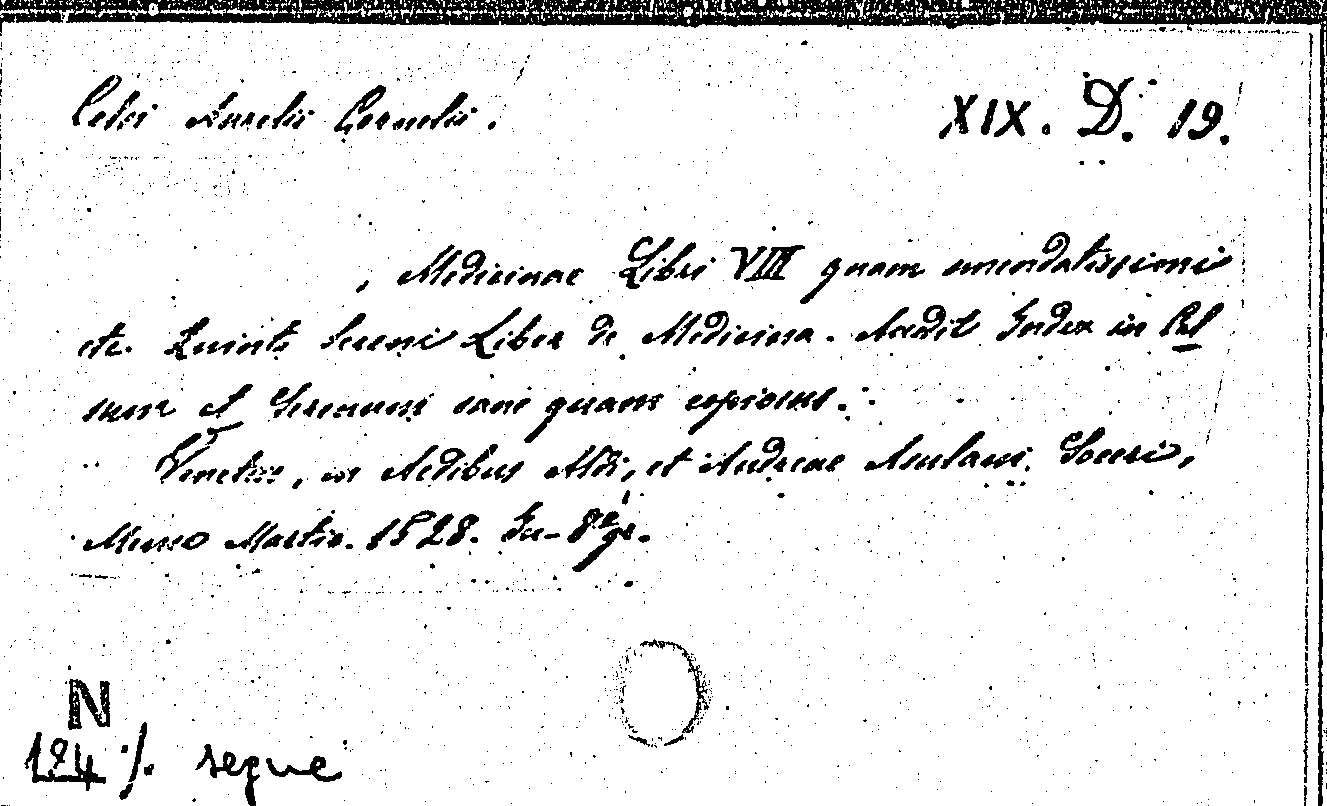 Celsi Aurelii Cornelii.
XIX. D. 19.
, Medicinae Libri VIII quam emendatissimi
etc. Quinti Sereni Liber de Medicina. Accedit Index in Cel
sum et Serenum sane quam copiosus.
Venetiis, in Aedibus Aldi, et Andreae Asulani Soceri,
Mense Martio. 1528. In-8º gr.
N
124 ./. segue